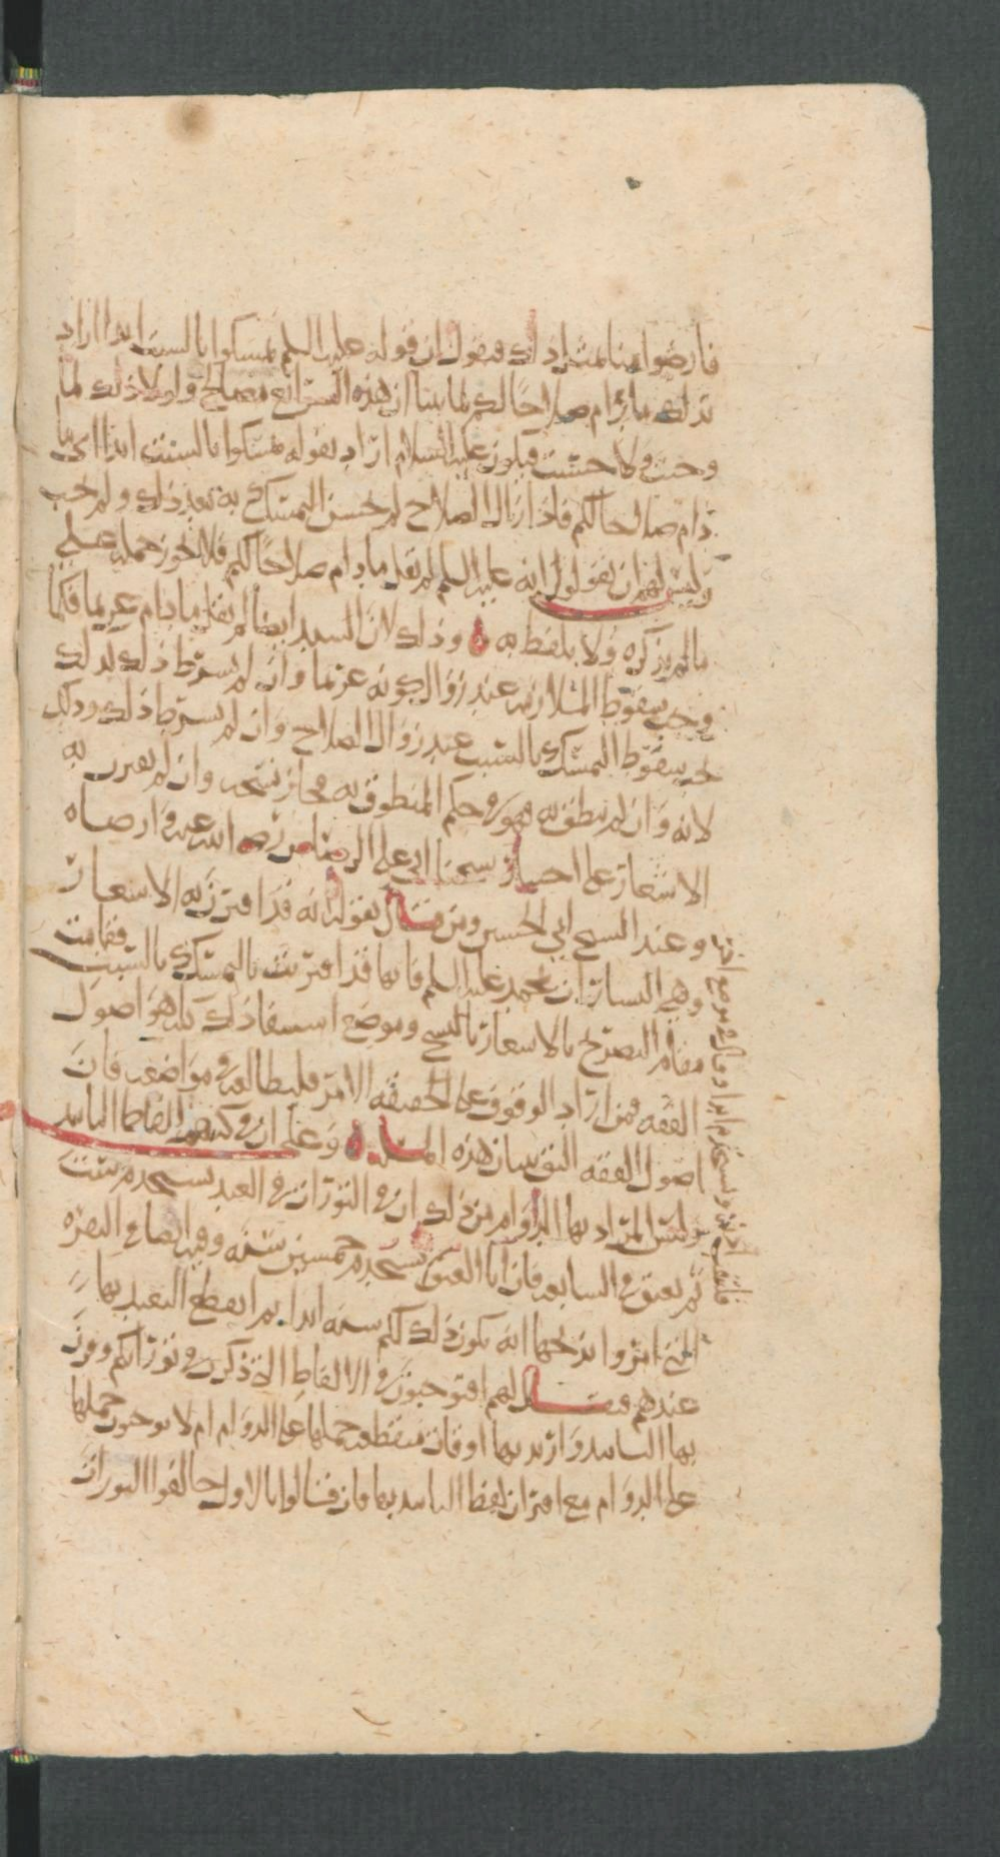 فارضوا منا بمثل ذلك فنقول ان قوله عليه السلم تمسكوا بالسبت ابدا اراد
بذلك ما دام صلاحا لكم لما بينا ان هذه الشرائع مصالح ولولا ذلك لما
وجبت ولا حسنت فيكون عليه السلام اراد بقوله تمسكوا بالسبت ابدا اي ما
دام صلاحا لكم فاذا زال الصلاح لم يحسن التمسك به بعد ذلك ولم يجب
وليس لهم ان يقولوا انه عليه السلم لم يقل ما دام صلاحا لكم فلا يجوز حمله على
ما لم يذكره ولا يلفظ به وذلك لان السيد ايضا لم يقل ما دام غريما فكما
وجب سقوط الملازمه عند زوال كونه غريما وان لم يشرط ذلك كذلك
يجب سقوط التمسك بالسبت عند زوال الصلاح وان لم يشرط ذلك وذلك
لانه وان لم ينطق به فهو في حكم المنطوق به فجاز نسخه وان لم يقترن به
الاشعار على اختيار شيخنا ابي علي رضي الله عنه وارضاه
وعند الشيخ ابي الحسين ومن قال بقوله انه قد اقترن به الاشعار
وهي البشارات بمحمد عليه السلم فانها قد اقترنت بالتمسك بالسبت فقامت
مقام التصريح بالاشعار بالنسخ وموضع استيفا ذلك كله هو اصول
الفقه فمن اراد الوقوف على الحقيقه الامر فليطالعه في مواضعه فان
اصول الفقه اليق ببيان هذه المسله وعلى ان في كتبهم الفاظا للتابيد
وليس المراد بها الدوام من ذلك ان في التوراه في العبد يستخدم ست
ثم يعتق في السابعه فان ابا العتق يستخدم خمسين سنه وفيها ايضا في البقره
التي امروا بذبحها انه يكون ذلك لكم سنه ابدا ثم انقطع التعبد بها
عندهم فقل لهم اتوجبون في الالفاظ التي ذكرت في توراتكم وقرن
بها التابيد واريد بها اوقات منقطعه حملها على الدوام ام لا توجبون حملها
على الدوام مع اقتران لفظ التابيد بها فان قالوا بالاول خالفوا التوراه